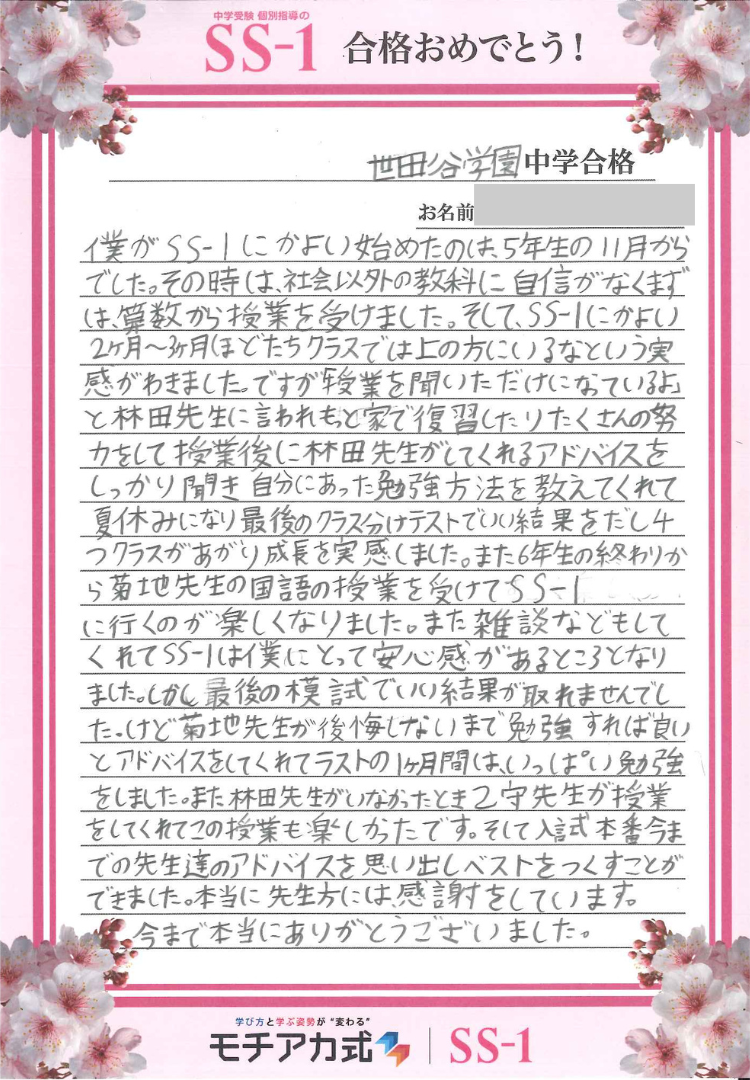 中学受験 個別指導の
SS-1 合格おめでとう！
世田谷学園中学合格
お名前
僕がSS-1にかよい始めたのは、5年生の11月から
でした。その時は、社会以外の教科に自信がなくまず
は、算数から授業を受けました。そして、SS-1にかよい
2ヶ月〜3ヶ月ほどたちクラスでは上の方にいるなという実
感がわきました。ですが「授業を聞いただけになっているよ」
と林田先生に言われもっと家で復習したりたくさんの努
力をして授業後に林田先生がしてくれるアドバイスを
しっかり聞き自分にあった勉強方法を教えてくれて
夏休みになり最後のクラス分けテストでいい結果をだし4
つクラスがあがり成長を実感しました。また6年生の終わりか
ら菊地先生の国語の授業を受けてSS-1
に行くのが楽しくなりました。また雑談などもして
くれてSS-1は僕にとって安心感があるところとなり
ました。しかし最後の模試でいい結果が取れませんでし
た。けど菊地先生が後悔しないまで勉強すれば良い
とアドバイスをしてくれてラストの1ヶ月間は、いっぱい勉強
をしました。また林田先生がいなかったとき二守先生が授業
をしてくれてこの授業も楽しかったです。そして入試本番今ま
での先生達のアドバイスを思い出しベストをつくすことが
できました。本当に先生方には、感謝をしています。
今まで本当にありがとうございました。
学び方と学ぶ姿勢が“変わる”
モチアカ式 | SS-1